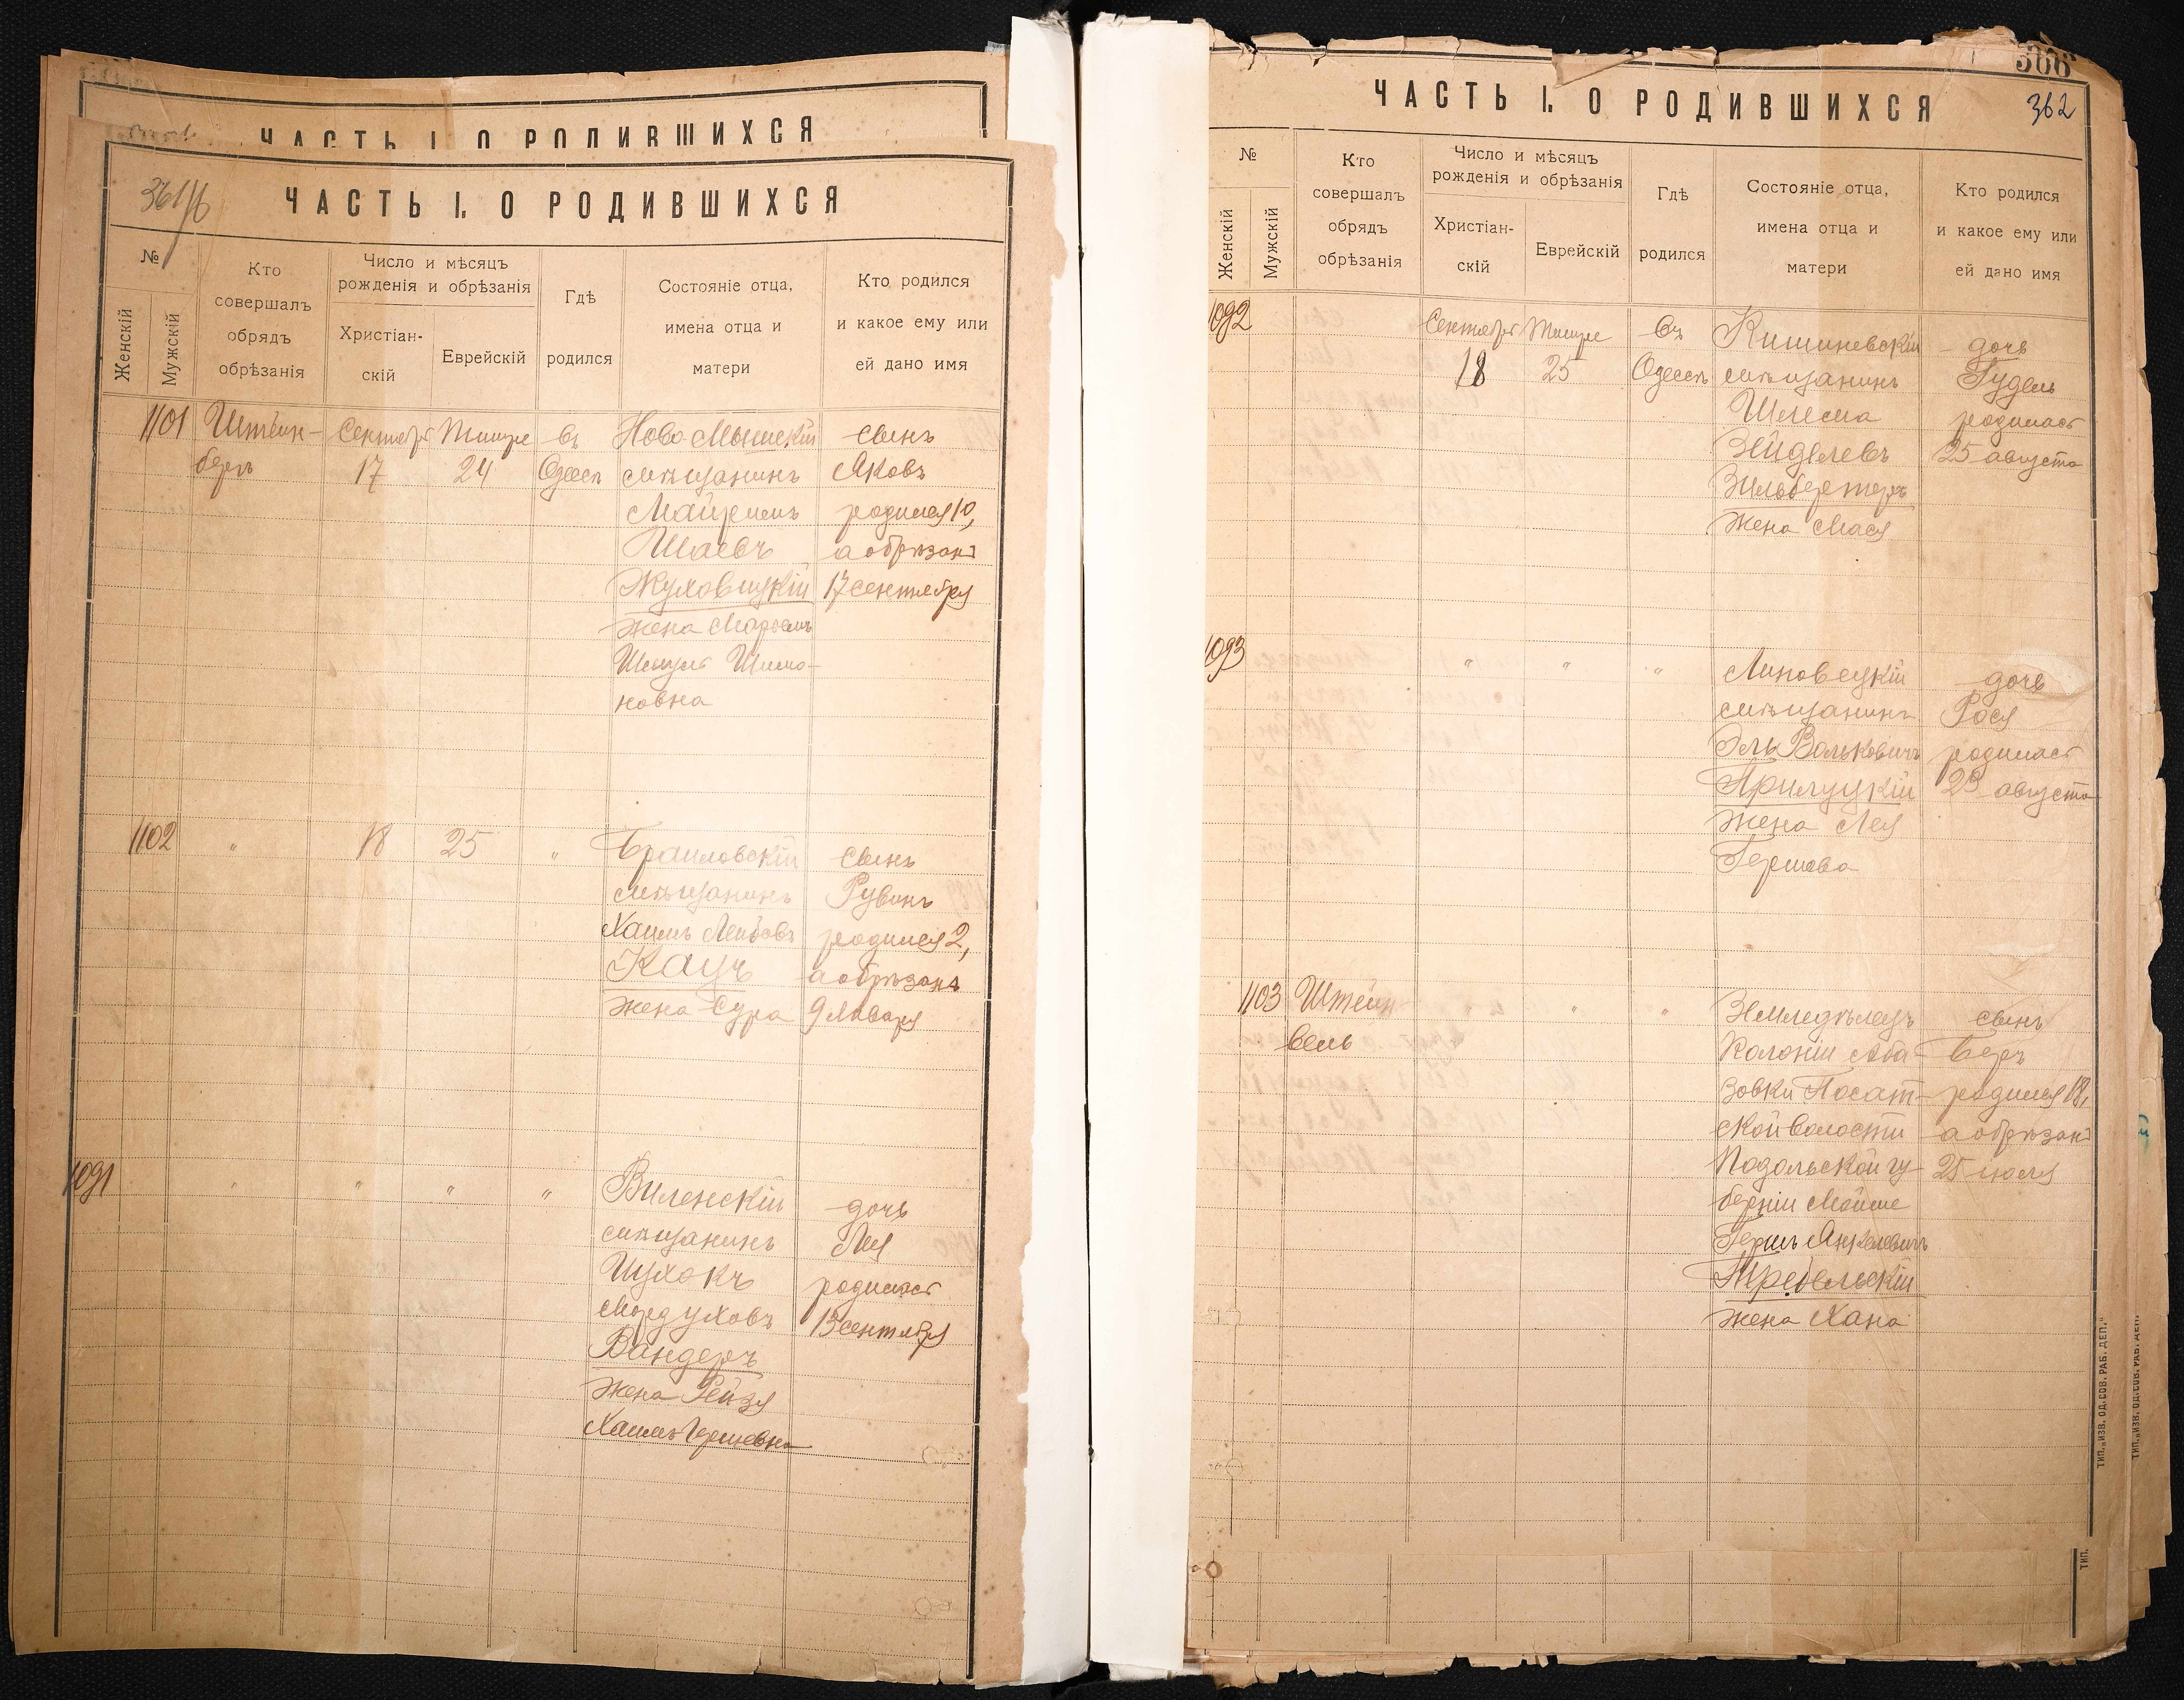 ЧАСТЬ I. О РОДИВШИХСЯ
361/б
ЧАСТЬ I. О РОДИВШИХСЯ
№
Женскій
Мужскій
Кто
совершалъ
обрядъ
обрѣзанія
Число и мѣсяцъ
рожденія и обрѣзанія
Христіан-
скій
Еврейскій
Гдѣ
родился
Состояніе отца,
имена отца и
матери
Кто родился
и какое ему или
ей дано имя
1101
Штейн-
бергъ
Сентябрь
17
Тишре
24
въ
Одессѣ
Ново Мышскій
мѣщанинъ
Шаевъ
Жуховицкій
жена Марьемъ
Шимо-
новна
сынъ
Яковъ
родился 10,
а обрѣзанъ
17 сентября
1102
"
18
25
"
Браиловскій
мѣщанинъ
Хаимъ Лейбовъ
Кацъ
жена Сура
сынъ
Рувинъ
родился 2,
а обрѣзанъ
9 Января
1091
"
"
"
"
Виленскій
мѣщанинъ
Ицхокъ
Мордуховъ
Вандеръ
жена Рейзя
Хаимъ Гершевна
дочь
Лея
родилась
13 сентября
306
362
ЧАСТЬ I. О РОДИВШИХСЯ
№
Женскій
Мужскій
Кто
совершалъ
обрядъ
обрѣзанія
Число и мѣсяцъ
рожденія и обрѣзанія
Христіан-
скій
Еврейскій
Гдѣ
родился
Состояніе отца,
имена отца и
матери
Кто родился
и какое ему или
ей дано имя
1092
Сентябрь
18
Тишре
25
въ
Одессѣ
Кишиневскій
мѣщанинъ
Шлема
Зейделевъ
Зильбертеръ
жена Мася
дочь
Гудель
родилась
25 августа
1093
"
"
"
Липовецкій
мѣщанинъ
Эль Вольковичъ
Прилуцкій
жена Лея
Гершева
дочь
Рося
родилась
29 августа
1103
Штейн-
вель
"
"
"
Земледѣлецъ
Колоніи Аба-
зовки Посат-
ской волости
Подольской гу-
берніи Мойше
Гершъ Янкелевичъ
Требельскій
жена Хана
сынъ
Беръ
родился 18,
а обрѣзанъ
25 іюля
ТИП. „ИЗВ. ОД. СОВ. РАБ. ДЕП."
ТИП. „ИЗВ. ОД. СОВ. РАБ. ДЕП."
ТИП.